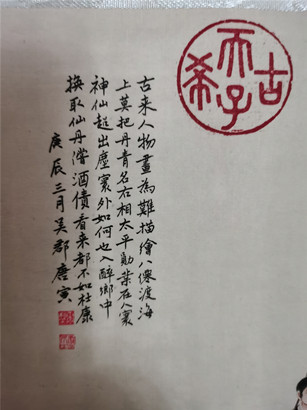 古希天子
古来人物畫為難描繪八僊渡海
上莫把丹青名右相太平勛業在人寰
神仙超出塵寰外如何也入醉鄉中
換取仙丹酒債看来都不如杜康
庚辰三月吴郡唐寅